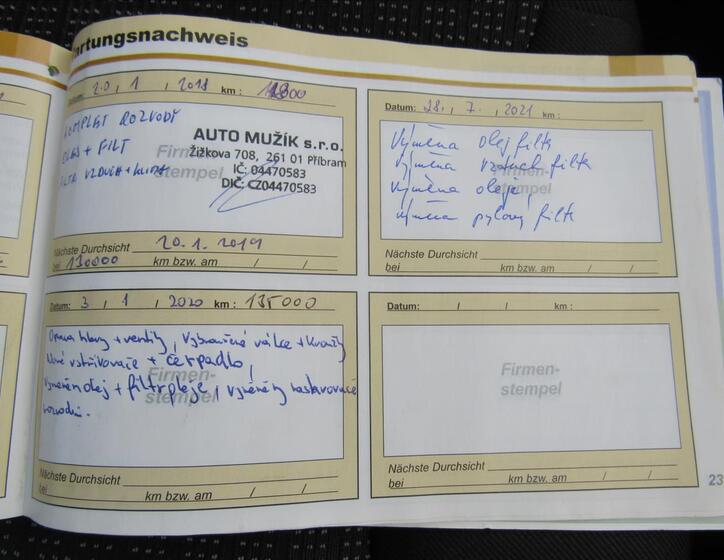 artungsnachweis
Datum: 20, 1, 2018 km:
KOMPLET ROZVODY
OLEJ + FILT
FILTR VZDUCH + KLIMA
Firmen-
stempel
AUTO MUŽÍK s.r.o.
Žižkova 708, 261 01 Příbram
IČ: 04470583
DIČ: CZ04470583
Nächste Durchsicht 20.1.2019
bei 130000 km bzw. am / /
Datum: 3, 1, 2020 km: 135000
Oprava hlavy + ventily, vybroušené válce + kroužky
Nové vstřikovače + čerpadlo,
Firmen-
stempel
vyměněn olej + filtr oleje, vyměněny
rozvodů.
Nächste Durchsicht
bei km bzw. am / /
Datum: 28., 7., 2021 km:
Výměna olej filtr
výměna vzduch filtr
Firmen-
stempel
výměna oleje,
výměna pylový filtr
Nächste Durchsicht
bei km bzw. am / /
Datum: / / km:
Firmen-
stempel
Nächste Durchsicht
bei km bzw. am / /
23